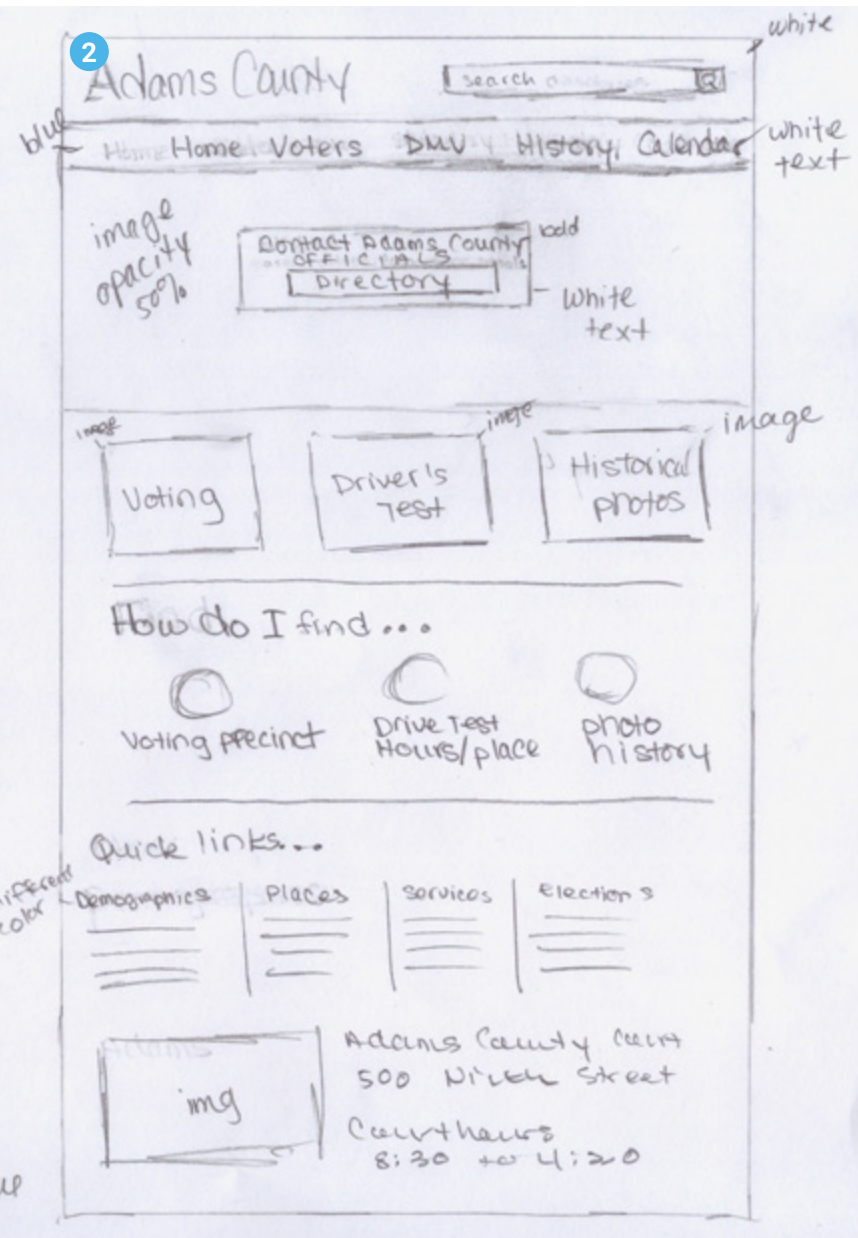 2
white
Adams County
search
blue
Home Voters DMV History Calendar
white
text
image
opacity
50%
Contact Adams County
OFFICIALS
bold
Directory
white
text
image
image
image
Voting
Driver's
Test
Historical
photos
How do I find...
Voting precinct
Drive Test
Hours/place
photo
history
Quick links...
color
Demographics
Places
services
elections
Adams
img
Adams County Court
500 Ninth Street
Court hours
8:30 to 4:20